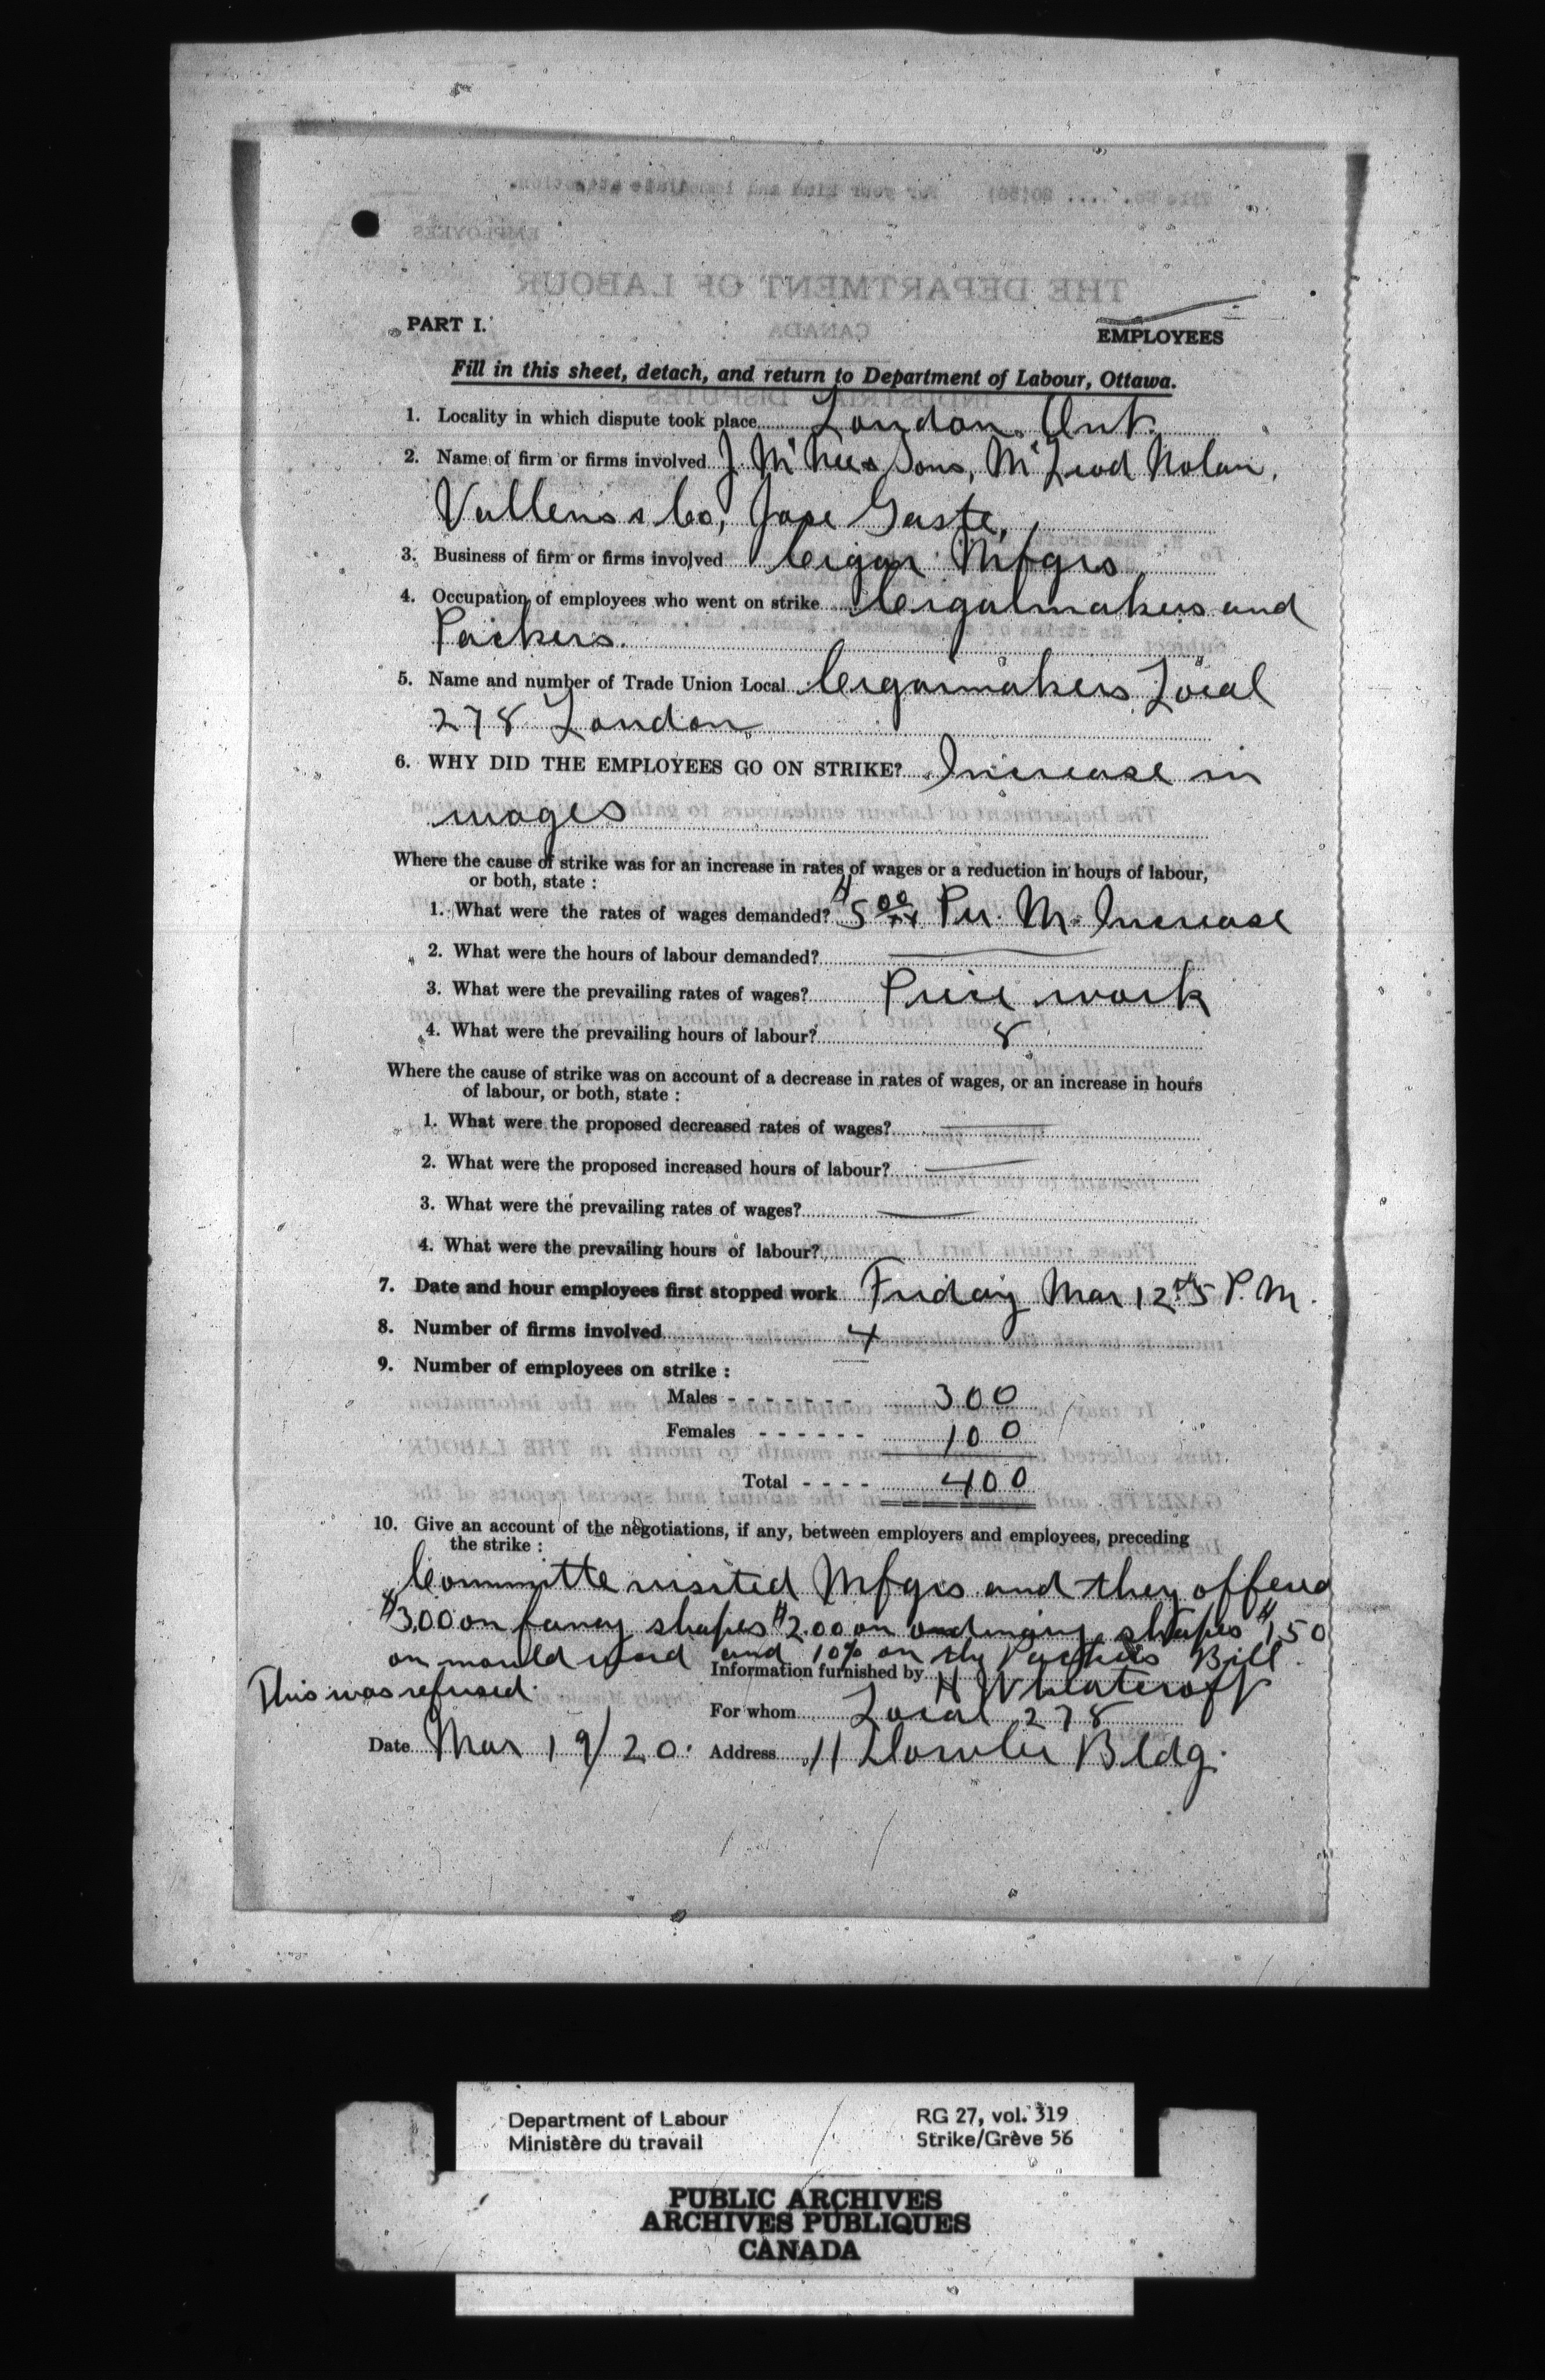 PART I.
EMPLOYEES
Fill in this sheet, detach, and return to Department of Labour, Ottawa.
1. Locality in which dispute took place London. Ont.
2. Name of firm or firms involved J McNees Sons, McLeod Nolan,
& Co,
3. Business of firm or firms involved Cigar Mfgrs
4. Occupation of employees who went on strike Cigarmakers and
Packers.
5. Name and number of Trade Union Local Cigarmakers Local
278 London
6. WHY DID THE EMPLOYEES GO ON STRIKE? Increase in
wages
Where the cause of strike was for an increase in rates of wages or a reduction in hours of labour,
or both, state :
1. What were the rates of wages demanded? $5 00/xx Per. M. Increase
2. What were the hours of labour demanded?
3. What were the prevailing rates of wages? Piece work
4. What were the prevailing hours of labour? 8
Where the cause of strike was on account of a decrease in rates of wages, or an increase in hours
of labour, or both, state :
1. What were the proposed decreased rates of wages?
2. What were the proposed increased hours of labour?
3. What were the prevailing rates of wages?
4. What were the prevailing hours of labour?
7. Date and hour employees first stopped work Friday Mar 12th 5 P.M.
8. Number of firms involved 4
9. Number of employees on strike :
Males - - - - - - - 300
Females - - - - - - 100
Total - - - - 400
10. Give an account of the negotiations, if any, between employers and employees, preceding
the strike :
Committe visited Mfgrs and they offered
$3.00 on fancy shapes $2.00 on ordinary shapes $1,50
on mould and 10% on the Packers Bill.
This was refused.
Information furnished by H Wheatcroft
For whom Local 278
Date Mar 19/20. Address 11 Bldg.
Department of Labour
Ministère du travail
RG 27, vol. 319
Strike/Grève 56
PUBLIC ARCHIVES
ARCHIVES PUBLIQUES
CANADA